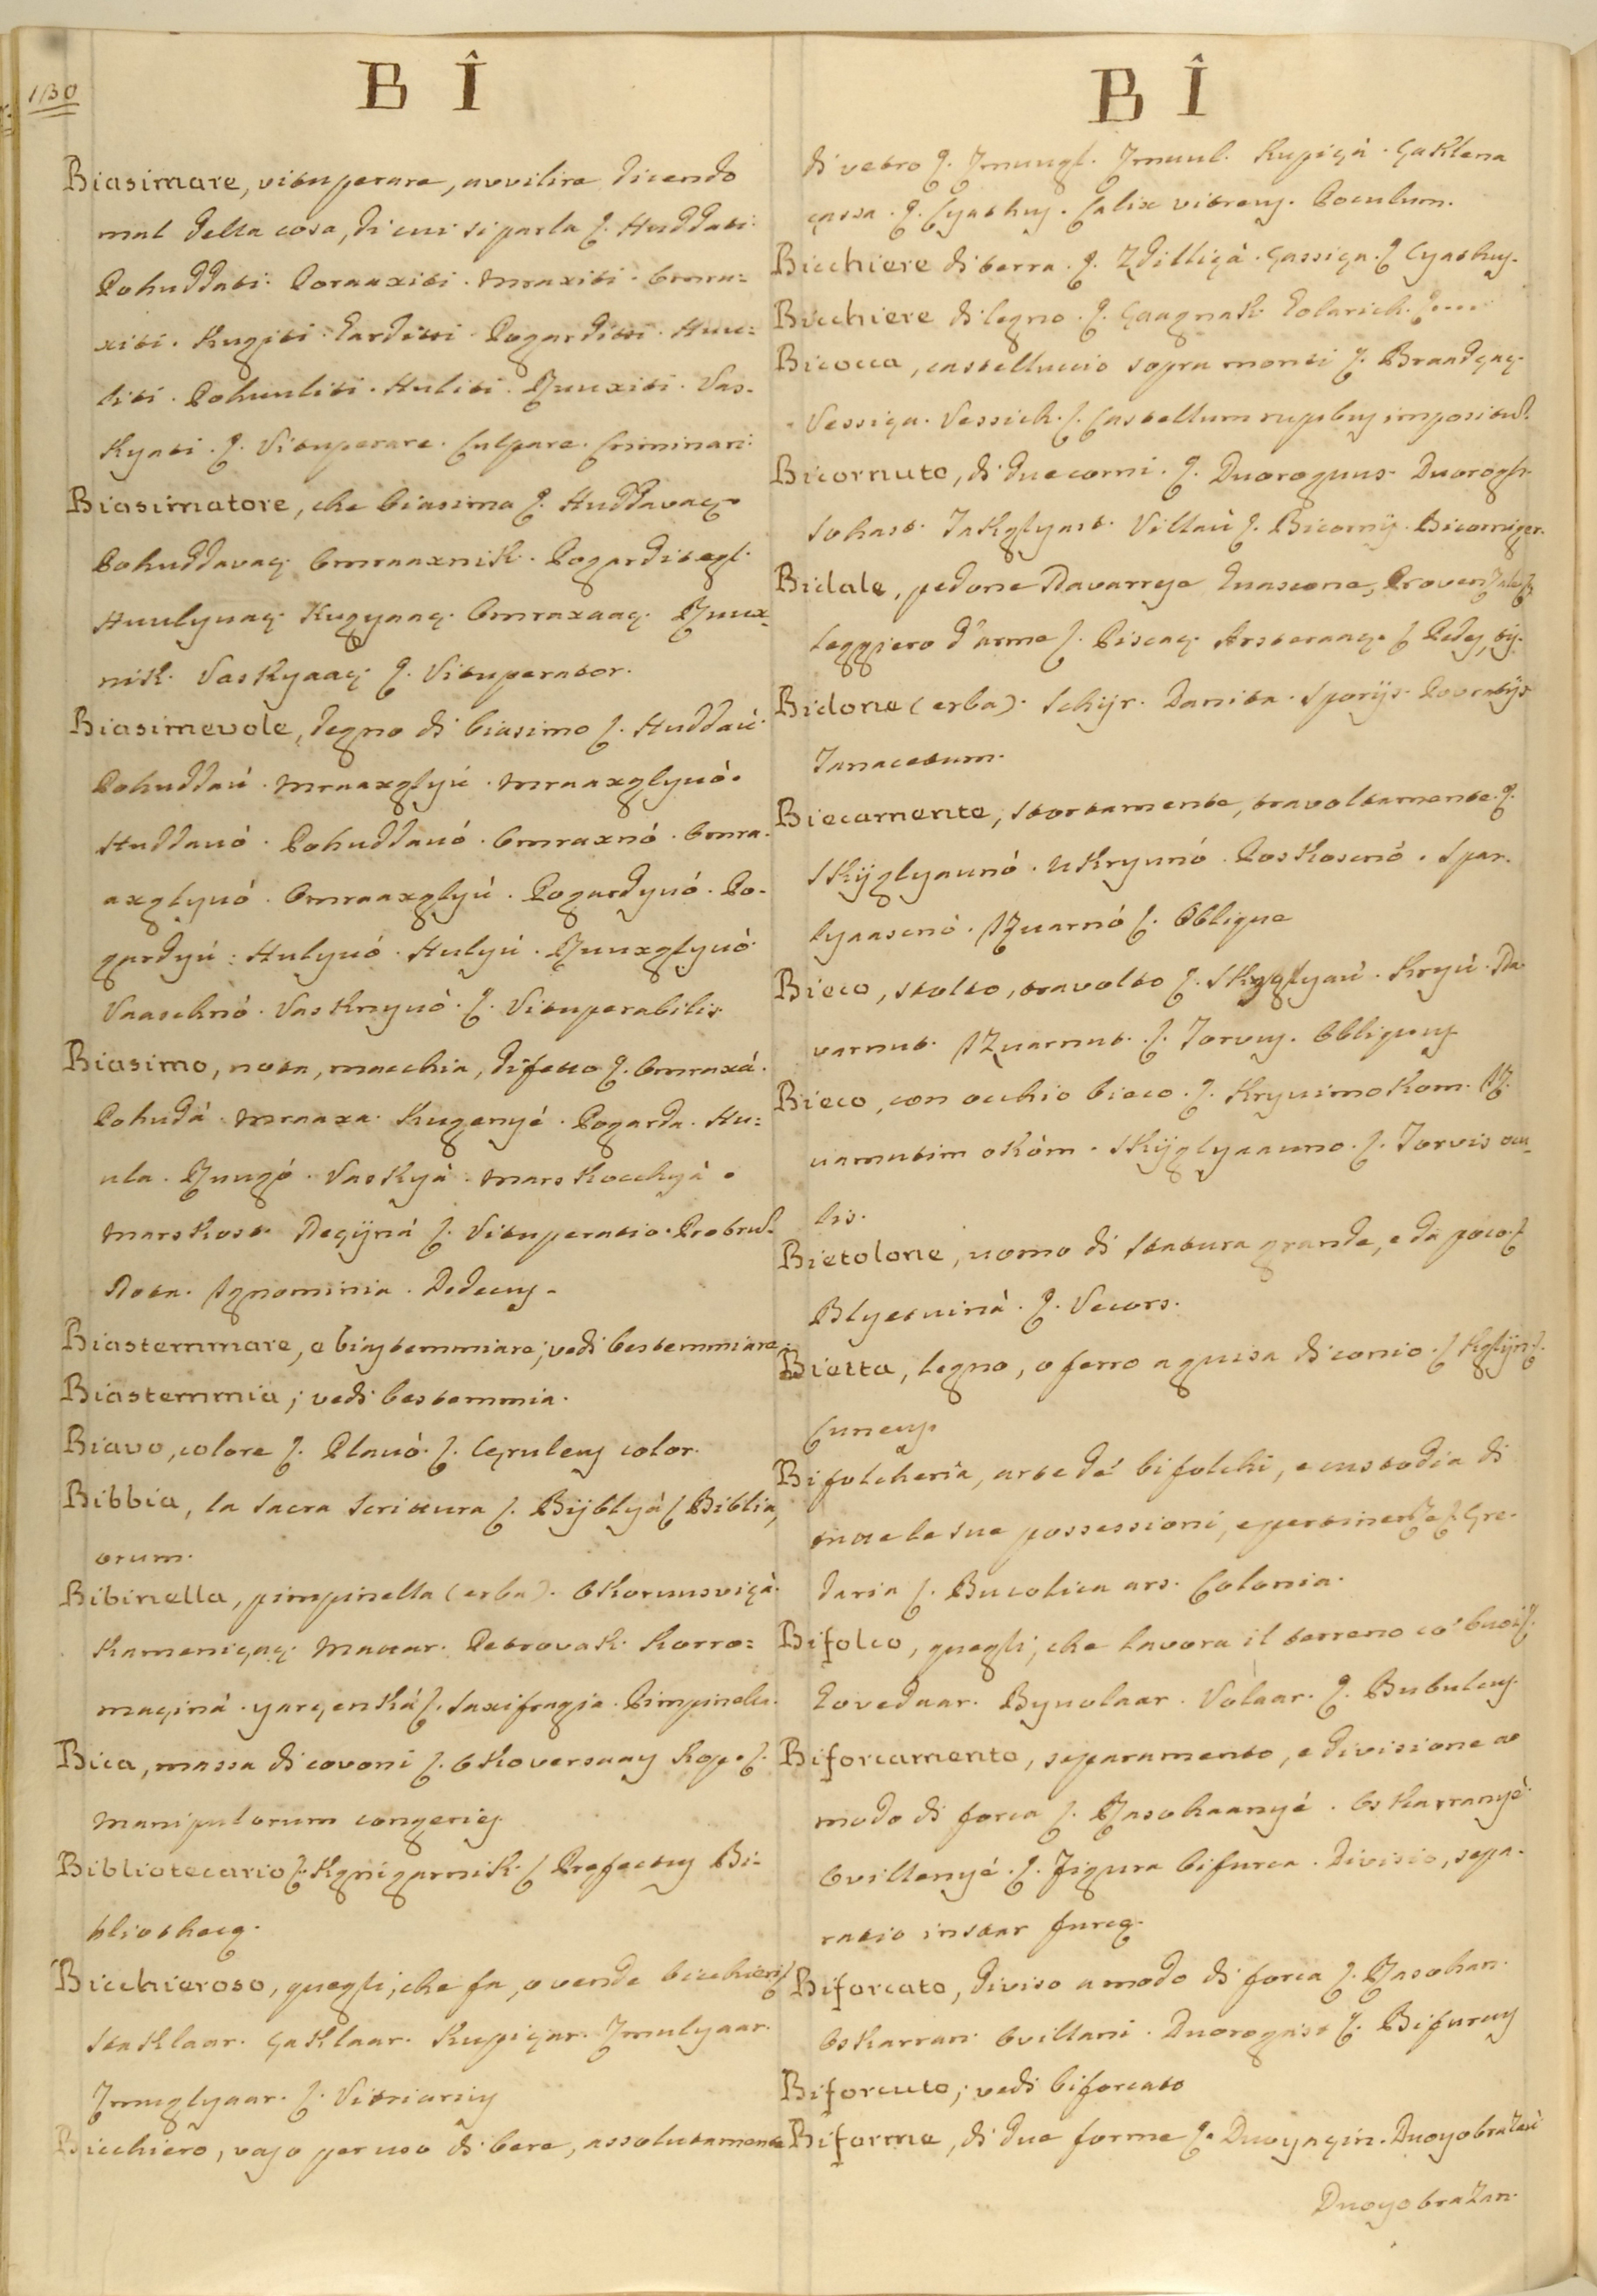 130
B Î
Biasimare, vituperare, avvilire dicendo
mal della cosa, di cui si parla ʃ. Huddati.
Pohuddati. Poraaxiti. Mraxiti. Omra=
xiti. Kugiti. Garditti. Pogarditti. Huu=
liti. Pohuuliti. Huliti. Ruuxiti. Vas-
kyati. ʃ. Vituperare. Culpare. Criminari.
Biasimatore, che biasima ʃ. Huddavaç.
Pohuddavaç. Omraaxnik. Pogarditegl.
Huulyvaç. Kugyaaç. Omraxaaç. Ruux-
nik. Vaskyaaç ʃ. Vituperator.
Biasimevole, degno di biasimo ʃ. Huddaú.
Pohuddaú. Mraaxglyú. Mraaxglyuó.
Huddauó. Pohuddauó. Omraxnó. Omra-
axglyuó. Omraaxglyú. Pogardyuó. Po-
gardyú: Hulyuó. Hulyú. Ruuxglyuó.
Vaaschnó. Vasknyuó. ʃ. Vituperabilis.
Biasimo, nota, macchia, difetto ʃ. Omraxá.
Pohudá. Mraaxa. Kugenyé. Pogarda. Hu=
ula. Ruugó. Vaskyá. Marskocchyá.
Marskost. Deçijná ʃ. Vituperatio. Probrum.
Nota. Ignominia. Dedecus.
Biastemmare, e biastemmiare; vedi bestemmiare.
Biastemmia; vedi bestemmia.
Biavo, colore ʃ. Plauó. ʃ. Cęruleus color.
Bibbia, la Sacra Scrittura ʃ. Bijblyà ʃ Biblia,
orum.
Bibinella, pimpinella (erba). Okoruusviçá.
Kameniçaç. Mauar. Petrovak. Korro=
maçiná. yarçenká ʃ. Saxifragia. Pimpinella.
Bica, massa di covoni ʃ. Okoversuay Kop. ʃ.
Manipulorum congeries.
Bibliotecario ʃ. Kgnigarnik. ʃ Prefectus Bi-
bliothecę.
Bicchieroso, quegli, che fa, o vende bicchieri ʃ
Staklaar. Çaklaar. Kupiçar. Jmulyaar.
Jmuglyaar. ʃ. Vitriarius
Bicchiero, vaso per uso di bere, assolutamente
B Î
di vetro ʃ. Jmuugl. Jmuul. Kupiçà. Çaklena
çassa. ʃ. Cyathus. Calix vitreus. Poculum.
Bicchiere di terra. ʃ. Zdilliçà. Çassiça. ʃ Cyathus.
Bicchiere di legno. ʃ. Çaagnak. Golarich. ʃ....
Bicocca, castelluccio sopra monti ʃ. Braadçaç.
Vessiça. Vessich. ʃ. Castellum rupibus impositum.
Bicornuto, di due corni. ʃ. Duoroguus. Duorogh.
Sohast. Jakglyast. Villaú ʃ. Bicornis. Bicorniger.
Bidale, pedone Navarrese Guascone, Provenzale
leggiero d'arme ʃ. Piscaç. Arsteraaç. ʃ Pedes, tis.
Bidone (erba). Schijr. Danita. Sporijs. Povratijs.
Tanacetum.
Biecamente, stortamente, travoltamente. ʃ.
Skijglyaunó. Ukryunó. Poskosenó. Spar.
lyaasenó. Izuarnó ʃ. Oblique
Bieco, stolto, travolto ʃ. Skyglyaú. Kryú. Na-
varnut. Izuarnut. ʃ. Torvus. Obliquus.
Bieco, con occhio bieco. ʃ. Kryuimokom. Iz-
uarnutim okóm. Skijglyaauno. ʃ. Torvis ocu-
lis.
Bietolone, uomo di statura grande, e da poco ʃ
Blyetuinà. ʃ. Vecors.
Bietta, legno, o ferro a guisa di conio. ʃ Kglijn ʃ.
Cuneus.
Bifolcheria, arte de' bifolchi, e custodia di
tutte le sue possessioni, e pertinenze ʃ. Gre-
daria ʃ. Bucolica ars. Colonia.
Bifolco, quegli, che lavora il terreno co' buoi ʃ.
Govedaar. Byuolaar. Volaar. ʃ. Bubulcus.
Biforcamento, separamento, e divisione a
modo di forca ʃ. Razohaanyé. Oskarranyé.
Ovillenyé. ʃ. Figura bifurca. Divisio, sepa-
ratio instar furcę.
Biforcato, diviso a modo di forca ʃ. Razohan.
Oskarran. Ovillani. Duorogast ʃ. Bifurcus
Biforcuto; vedi biforcato
Biforme, di due forme ʃ. Duoyaçin. Duoyobrazaú
Duoyobrazan.